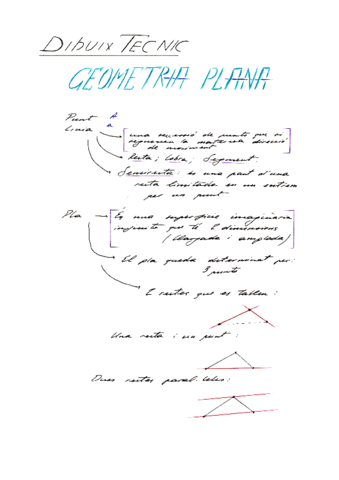 DIBUIX TECNIC
GEOMETRIA PLANA
Punt A
Linia a
una successió de punts que
segueixen la mateixa direcció
de moviment
Recta; Corba; Segment
Semirecta: és una part d'una
recta limitada en un extrem
per un punt
Pla
És una superficie imaginaria
infinita que té 2 dimensions
(llargada i amplada)
El pla queda determinat per:
3 punts
2 rectes que es tallen:
Una recta i un punt:
Dues rectes paral·leles: